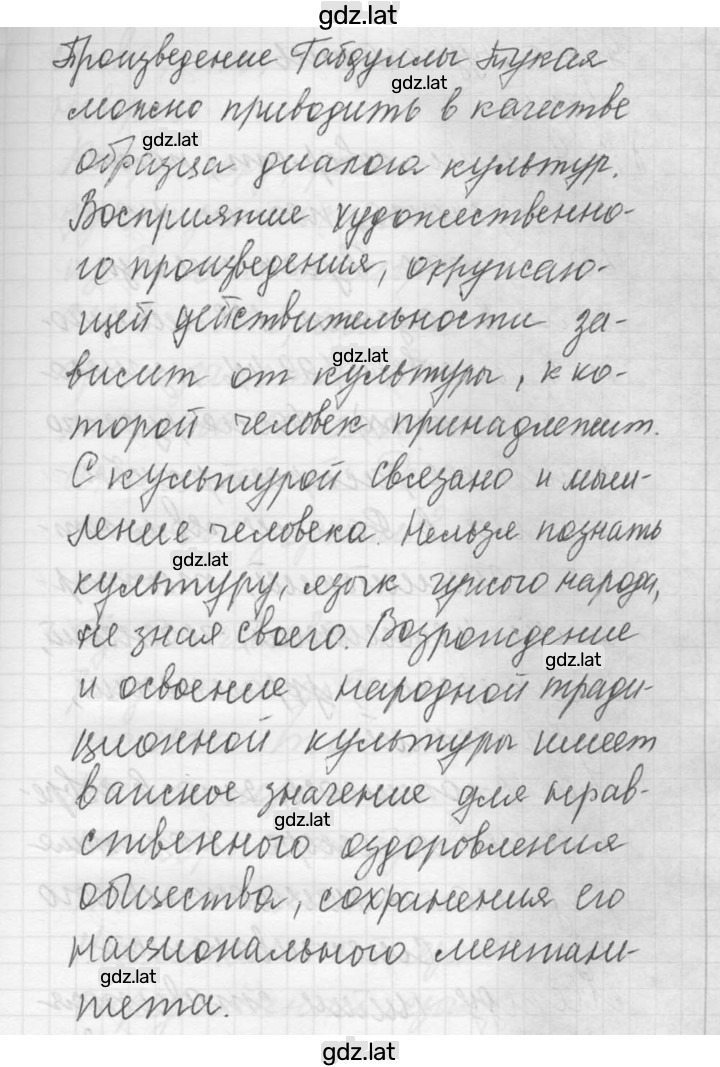 gdz.lat
Произведение Габдуллы Тукая
gdz.lat
можно приводить в качестве
gdz.lat
образца диалога культур.
Восприятие художественно-
го произведения, окружаю-
щей действительности за-
gdz.lat
висит от культуры, к ко-
торой человек принадлежит.
С культурой связано и мыш-
ление человека. Нельзя познать
gdz.lat
культуру, язык чужого народа,
не зная своего. Возрождение
gdz.lat
и освоение народной тради-
ционной культуры имеет
важное значение для нрав-
gdz.lat
ственного оздоровления
общества, сохранения его
национального ментали-
gdz.lat
тета.
gdz.lat